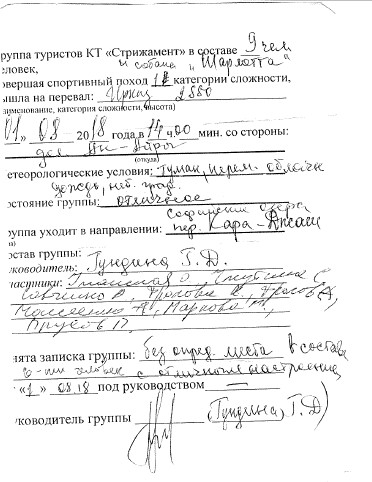 руппа туристов КТ «Стрижамент» в составе 9 чел
еловек, и собака „Шарлотта"
овершая спортивный поход 1 категории сложности,
ышла на перевал: Иркиз 2880
аименование, категория сложности, высота)
01» 08 2018 года в 14 ч.00 мин. со стороны:
дол.
(откуда)
етеорологические условия: Туман, перем. облачн
дождь, неб. град.
остояние группы: отличное
руппа уходит в направлении: Софийские озера
пер. Кара-Джаш
а)
остав группы:
уководитель: Тундина Г. Д.
частники:
Савченко Фролова Фролов А,
Моисеенко А, Маркова
Прусов П.
нята записка группы: без опред. места в составе
6-ти человек с отличным настроением
«1» 08.18 под руководством —
уководитель группы (Тундина, Г. Д)